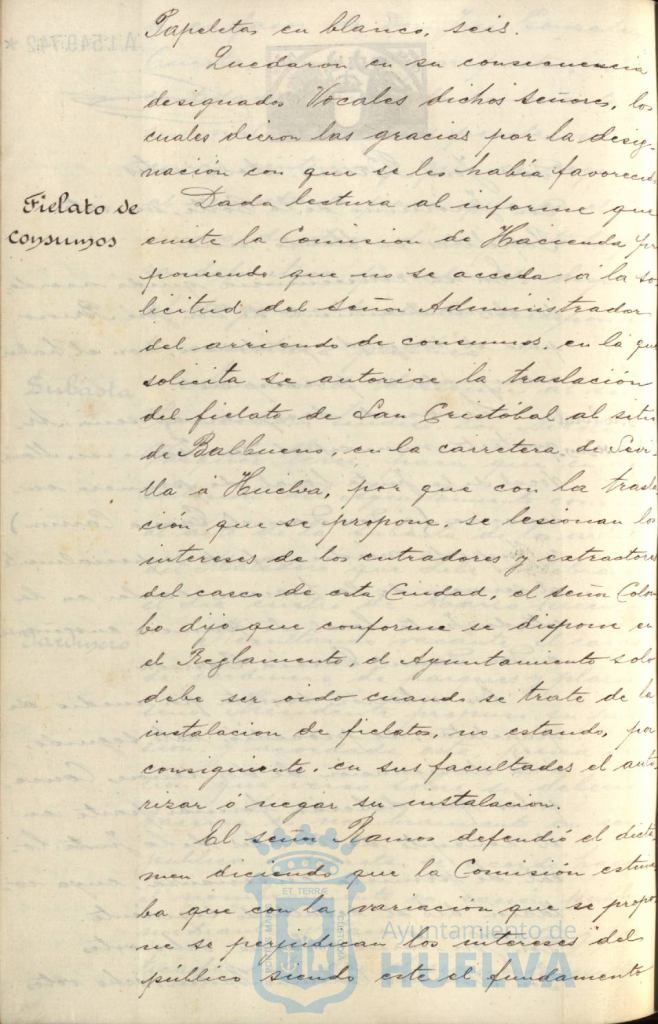 Papeletas en blanco, seis.
Quedaron en su consecuencia
designados Vocales dichos señores, los
cuales dieron las gracias por la desig-
nación con que se les había favorecido
Fielato de
consumos
Dada lectura al informe que
emite la Comision de Hacienda pro
poniendo que no se acceda á la so
licitud del señor Administrador
del arriendo de consumos, en la que
solicita se autorice la traslación
del fielato de San Cristóbal al sitio
de Balbueno, en la carretera de Sevi-
lla á Huelva, por que con la trasla
ción que se propone, se lesionan los
intereses de los entradores y extractores
del casco de esta Ciudad, el señor Colom
bo dijo que conforme se dispone en
el Reglamento, el Ayuntamiento solo
debe ser oido cuando se trate de la
instalacion de fielatos, no estando, por
consiguiente, en sus facultades el auto
rizar ó negar su instalacion.
El señor Ramos defendió el dicta
men diciendo que la Comisión estima
ba que con la variación que se propo
ne se perjudican los intereses del
público siendo este el fundamento
Ayuntamiento de
HUELVA